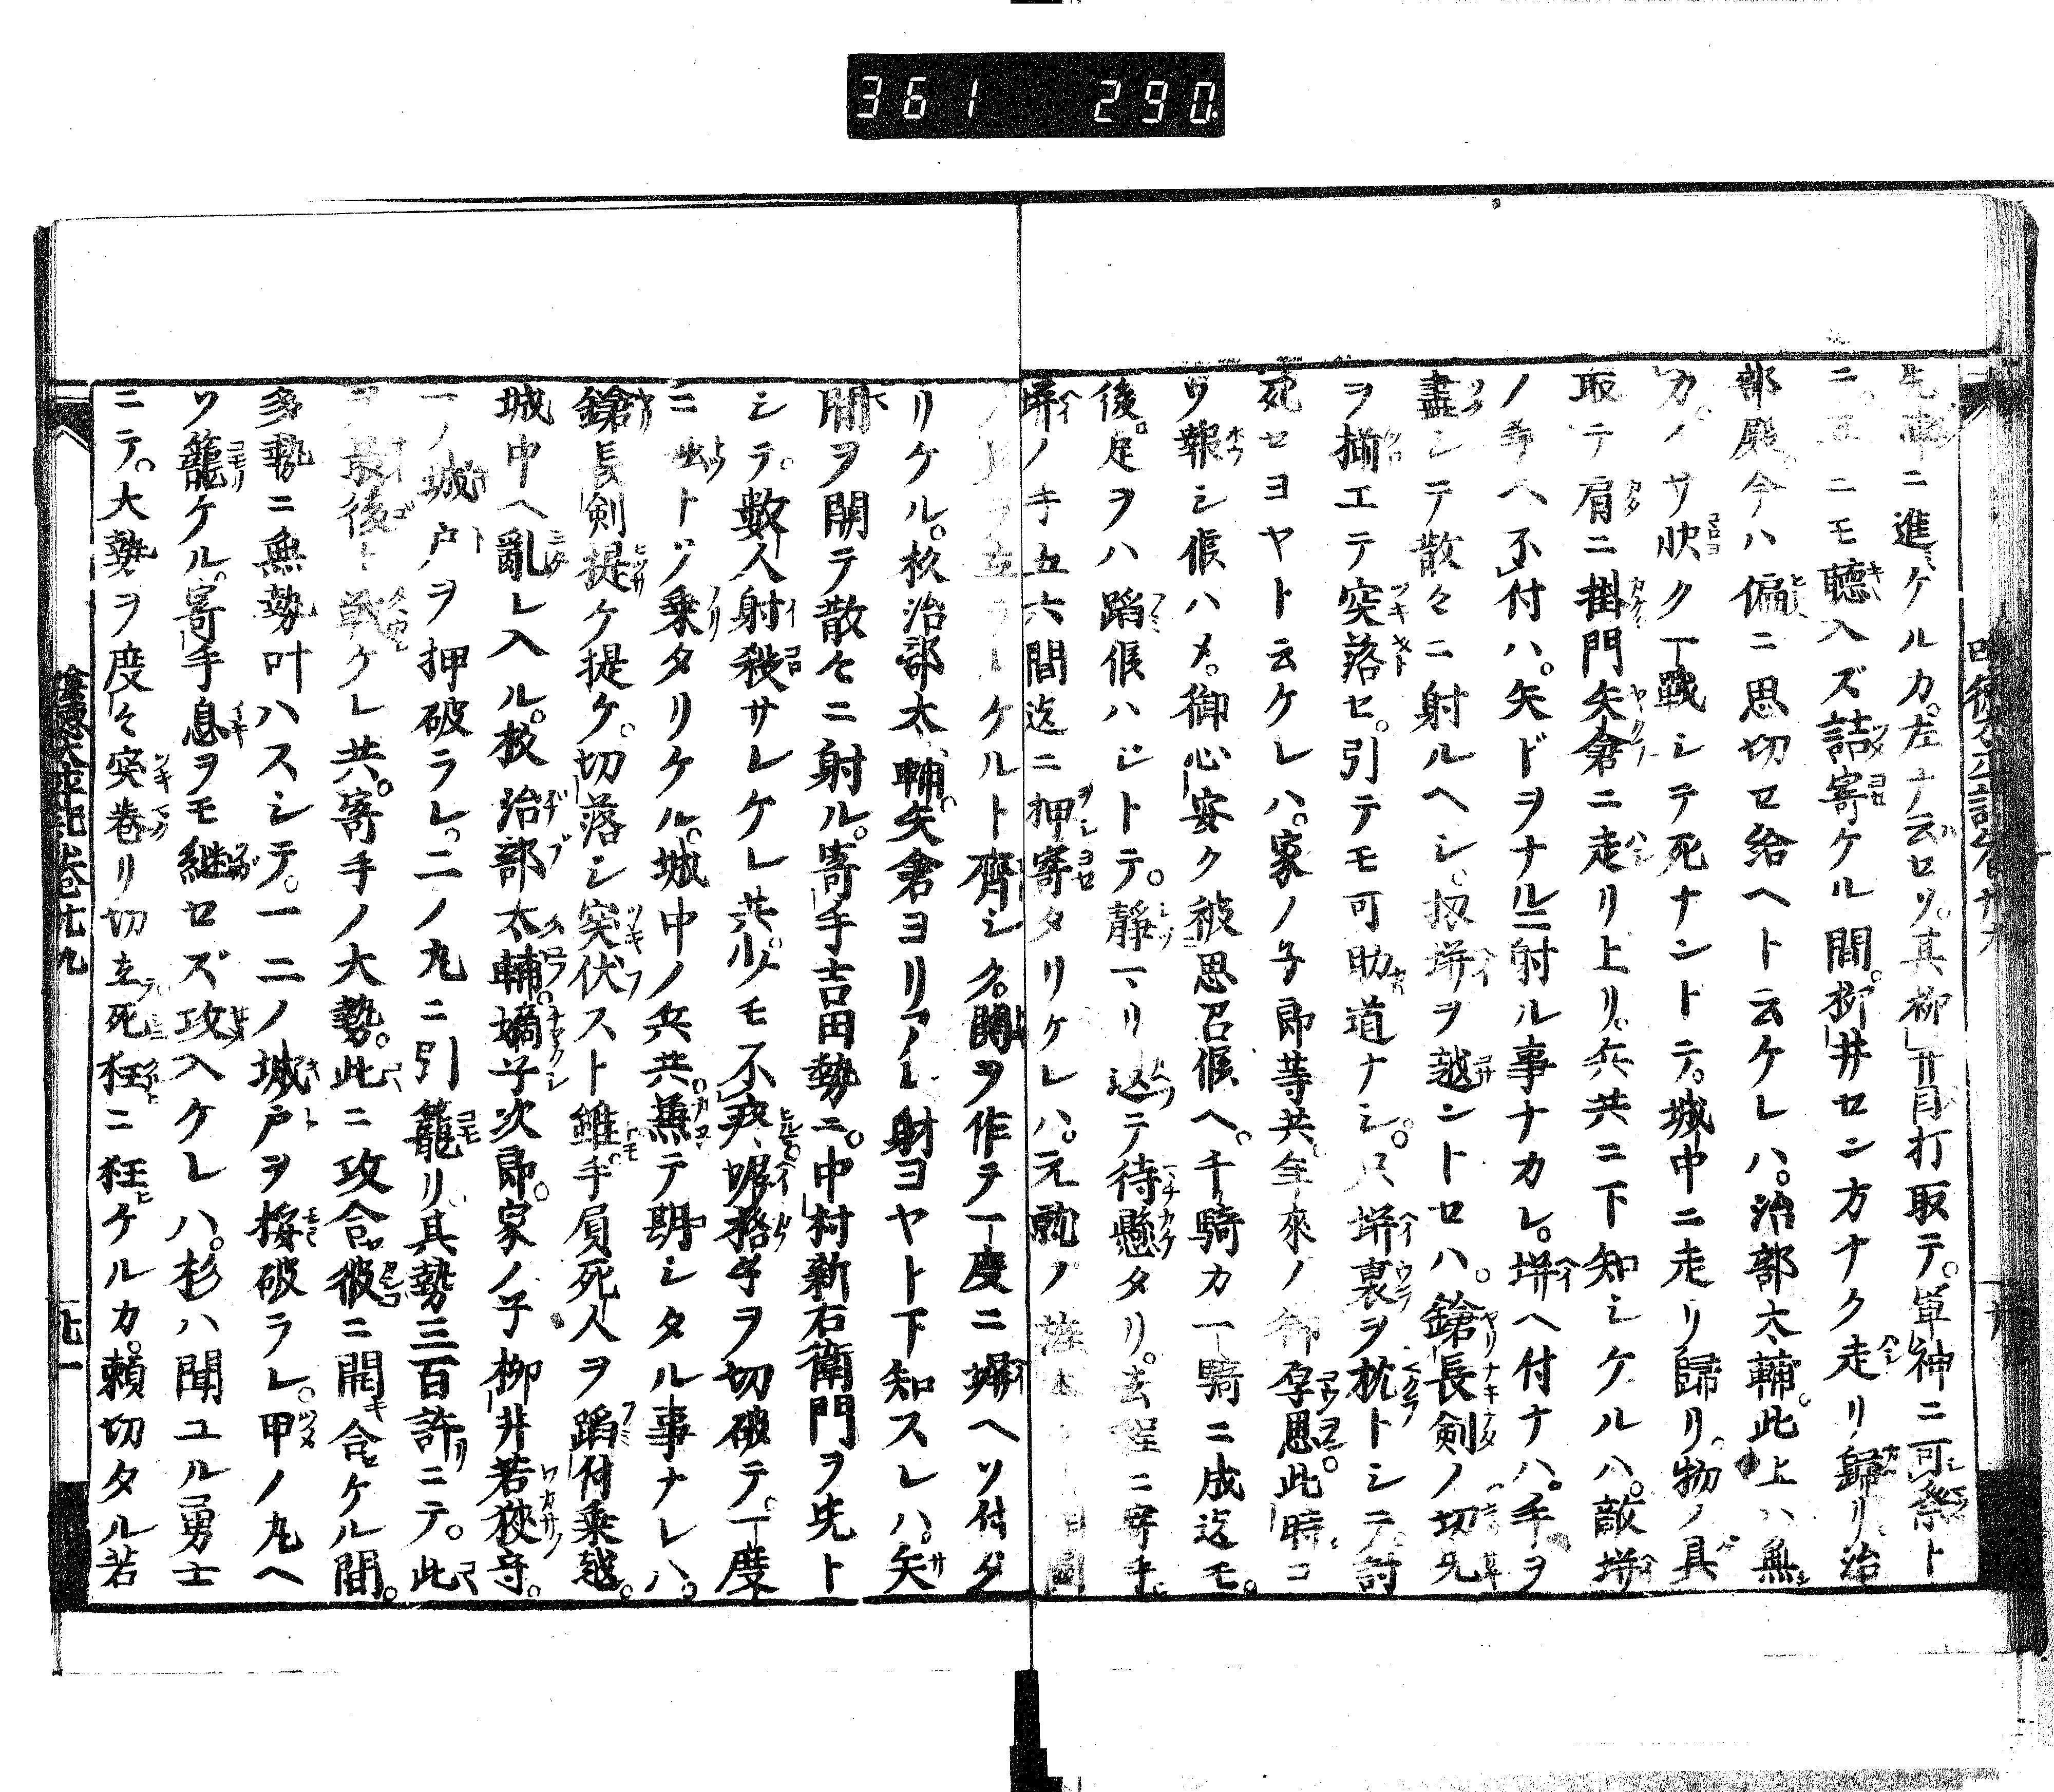 361 290
先車ニ進ケルカ。左ナ云セソ。其柳井自打取テ。軍神ニ可祭ト
ニ。耳ニモ聴入ズ詰寄ケル間。柳井セン方ナク走リ歸リ、治
部殿今ハ偏ニ思切ロ給ヘト云ケレハ。治部太輔。此上ハ無
力。イサ快ク一戰シテ死ナントテ。城中ニ走リ歸リ。物ノ具
取テ肩ニ掛門矢倉ニ走リ上リ。兵共ニ下知シケルハ。敵塀
ノ手ヘ不付ハ。矢ドヲナルニ射ル事ナカレ。塀ヘ付ナハ。手ヲ
盡シテ散々ニ射ルヘシ。扨塀ヲ越ントセハ。鎗長剣ノ切先
ヲ揃エテ突落セ。引テモ可助道ナシ。只塀裏ヲ枕トシテ討
死セヨヤト云ケレハ。家ノ子郎等共。年來ノ御厚恩。此時コ
ソ報シ候ハメ。御心安ク被思召候ヘ。千騎カ一騎ニ成迄モ。
後足ヲハ蹈候ハジトテ。靜マリ返テ待懸タリ。去程ニ寄手。
塀ノ手五六間迄ニ押寄タリケレハ。元就ノ
ケルト齊シク。鬨ヲ作テ一度ニ塀ヘソ付タ
リケル。杉治部太輔。矢倉ヨリアレ射ヨヤト下知スレハ。矢
間ヲ開テ散々ニ射ル。寄手吉田勢ニ。中村新右衛門ヲ先ト
シテ。数人射殺サレケレ共。少モ不疼、塀格子ヲ切破テ。一度
ニトツト乗タリケル。城中ノ兵共。兼テ期シタル事ナレハ。
鎗長剣提ケ提ケ。切落シ突伏スト雖。手負死人ヲ蹈付乗越。
城中ヘ亂レ入ル。杉治部太輔。嫡子次郎。家ノ子柳井若狹守。
一ノ城戸ヲ押破ラレ。二ノ丸ニ引籠リ。其勢三百許ニテ。此
ヲ最後ト戰ケレ共。寄手ノ大勢。此ニ攻合彼ニ開合ケル間。
多勢ニ無勢叶ハスシテ。一二ノ城戸ヲ揉破ラレ。甲ノ丸ヘ
ソ籠ケル。寄手息ヲモ継セズ攻入ケレハ。杉ハ聞ユル勇士
ニテ。大勢ヲ度々突巻リ切立死狂ニ狂ケルカ。頼切タル若
陰徳太平記巻廿九
廿一